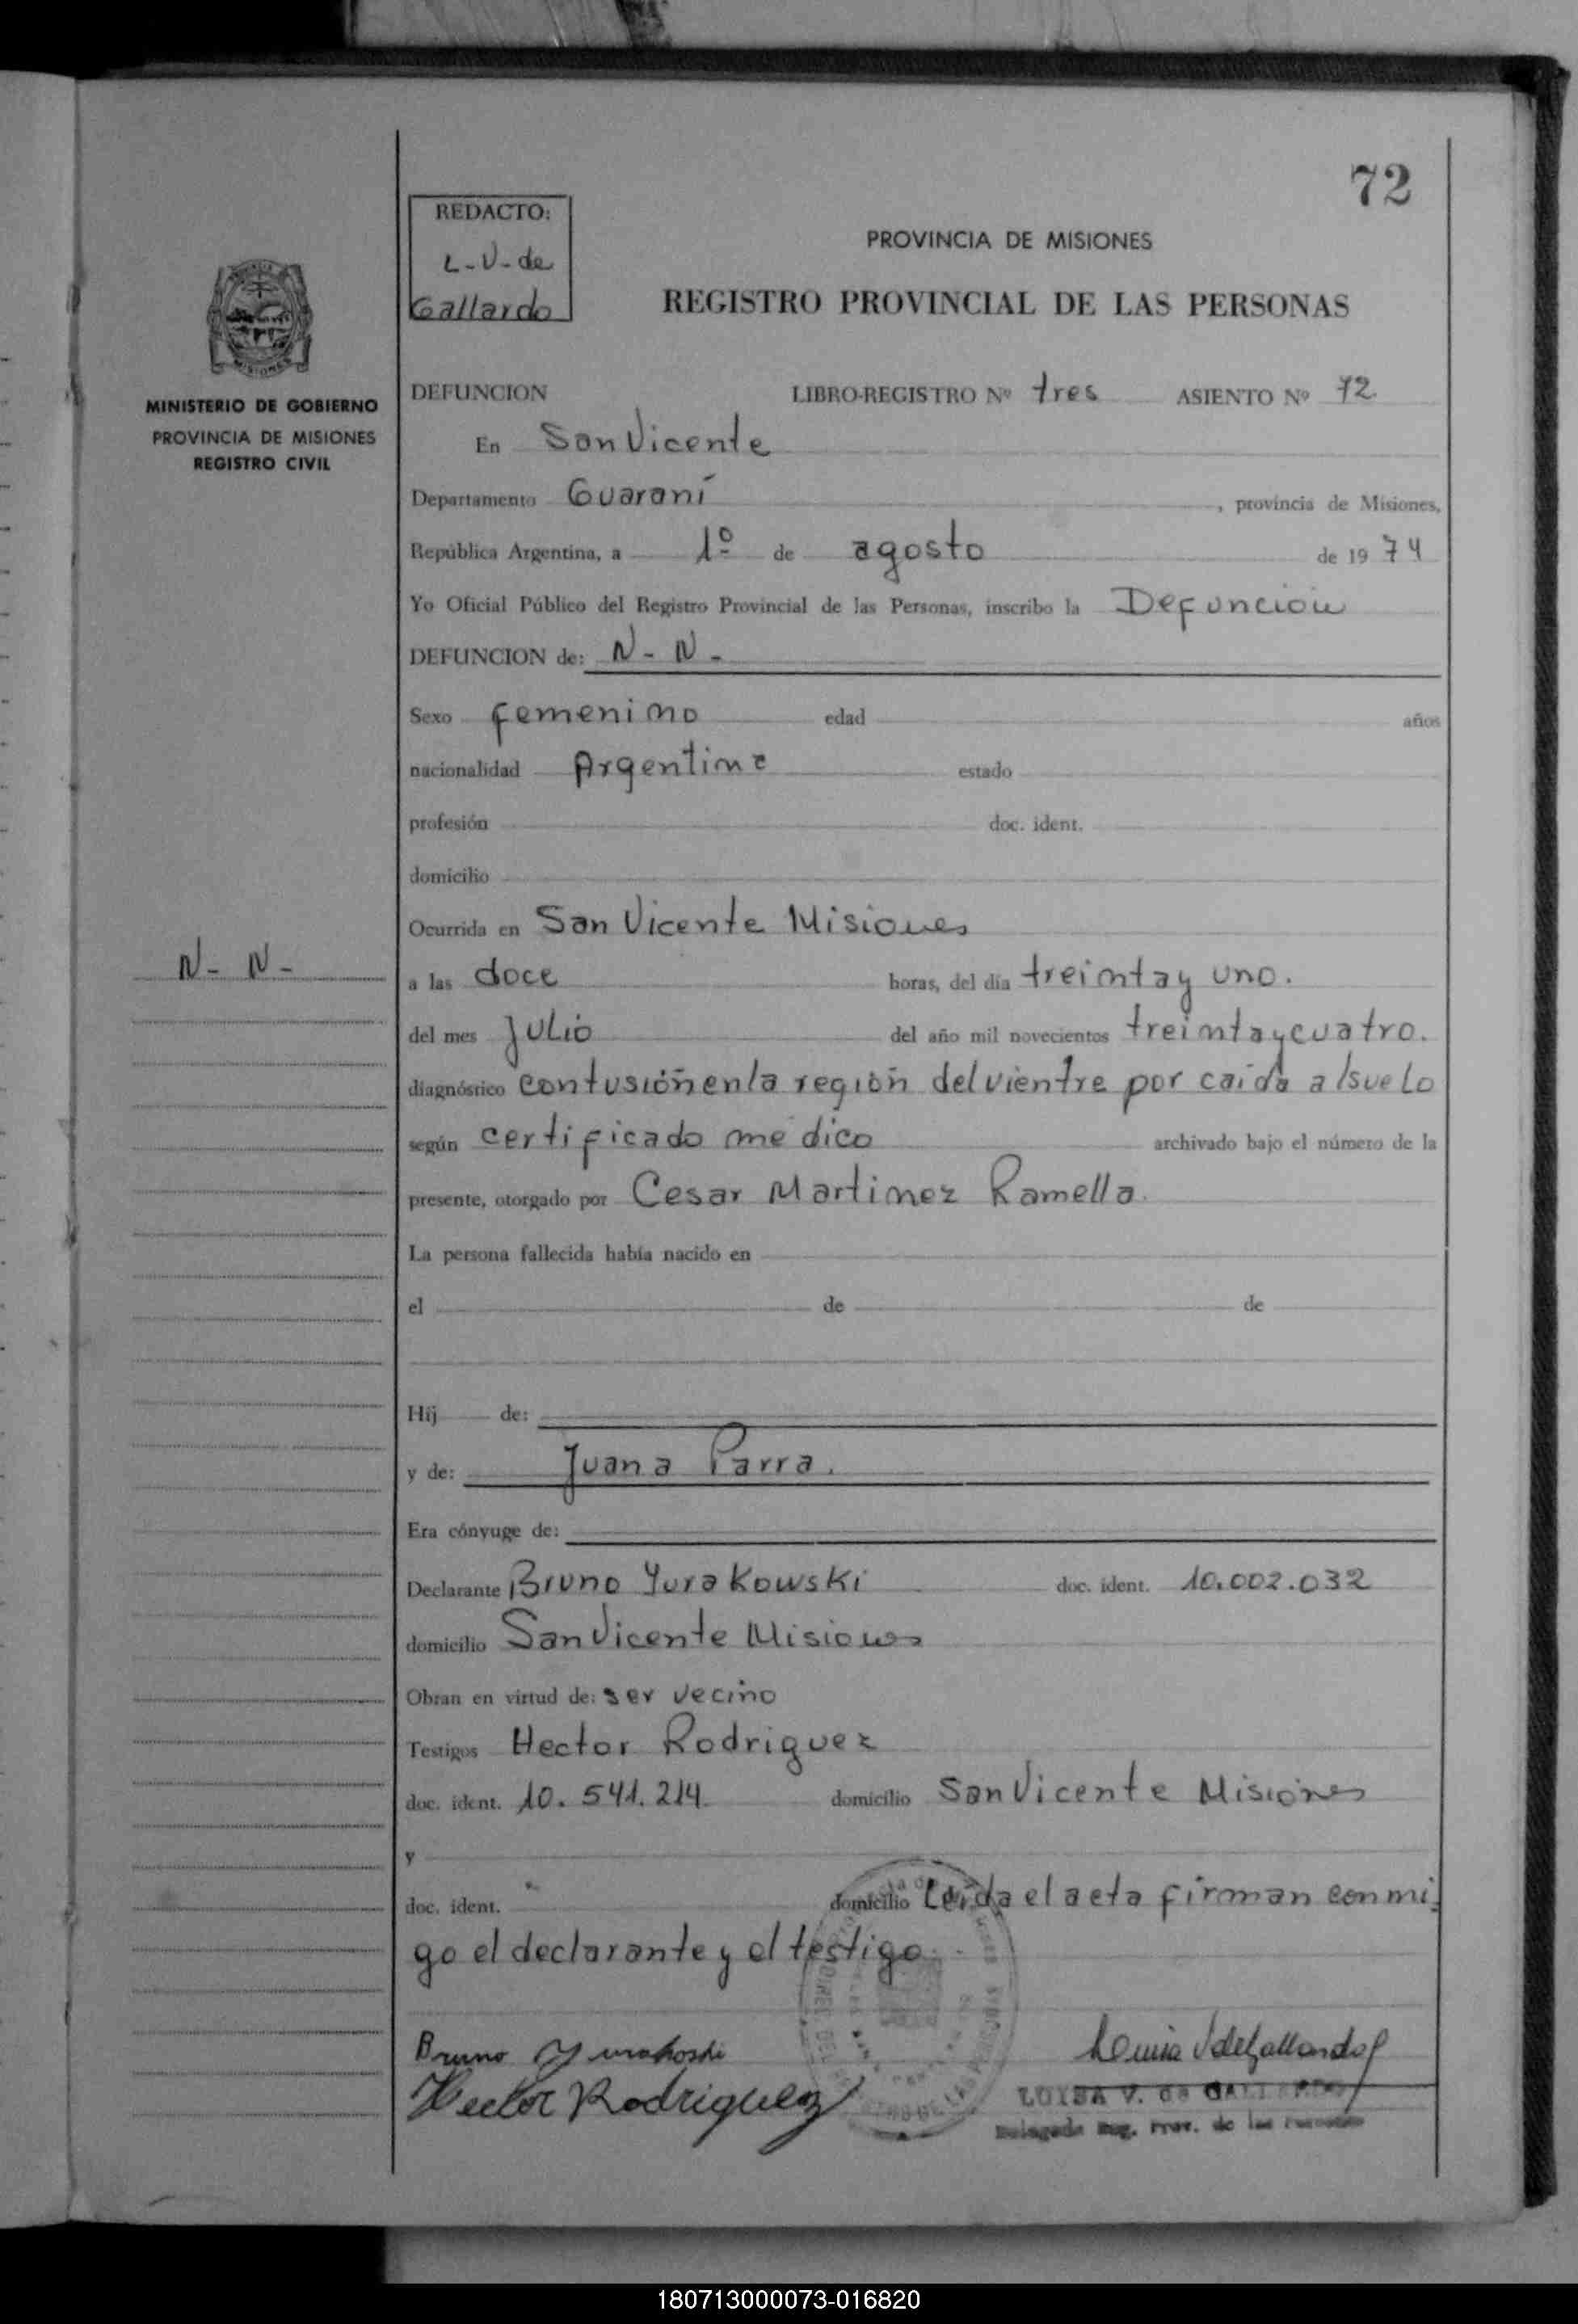 72
REDACTO:
L-V-de
Gallardo
PROVINCIA DE MISIONES
REGISTRO PROVINCIAL DE LAS PERSONAS
MISIONES
MINISTERIO DE GOBIERNO
PROVINCIA DE MISIONES
REGISTRO CIVIL
DEFUNCION LIBRO-REGISTRO Nº tres ASIENTO Nº 72
En San Vicente
Departamento Guaraní , provincia de Misiones,
República Argentina, a 1º de agosto de 19 74
Yo Oficial Público del Registro Provincial de las Personas, inscribo la Defuncion
DEFUNCION de: N- N-
Sexo femenino edad años
nacionalidad Argentina estado
profesión doc. ident.
domicilio
Ocurrida en San Vicente Misiones
N- N-
a las doce horas, del día treinta y uno.
del mes Julio del año mil novecientos treinta y cuatro.
diagnóstico contusión en la región del vientre por caída al suelo
según certificado medico archivado bajo el número de la
presente, otorgado por Cesar Martinez Ramella.
La persona fallecida había nacido en
el de de
Hij de:
y de: Juana Parra.
Era cónyuge de:
Declarante Bruno Yurakowski doc. ident. 10.002.032
domicilio San Vicente Misiones
Obran en virtud de: ser vecino
Testigos Hector Rodriguez
doc. ident. 10.541.214 domicilio San Vicente Misiones
y
doc. ident. domicilio Leida el acta firman conmi-
go el declarante y el testigo.
Bruno
Hector Rodriguez
LUISA V. de GALLARDO
Delegada Reg. Prov. de las Personas
180713000073-016820